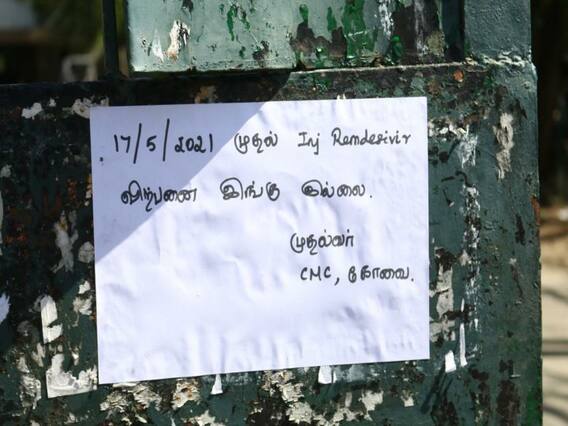 17/5/2021 முதல் Inj Remdesivir
விற்பனை இங்கு இல்லை.
முதல்வர்
CMC, கோவை.